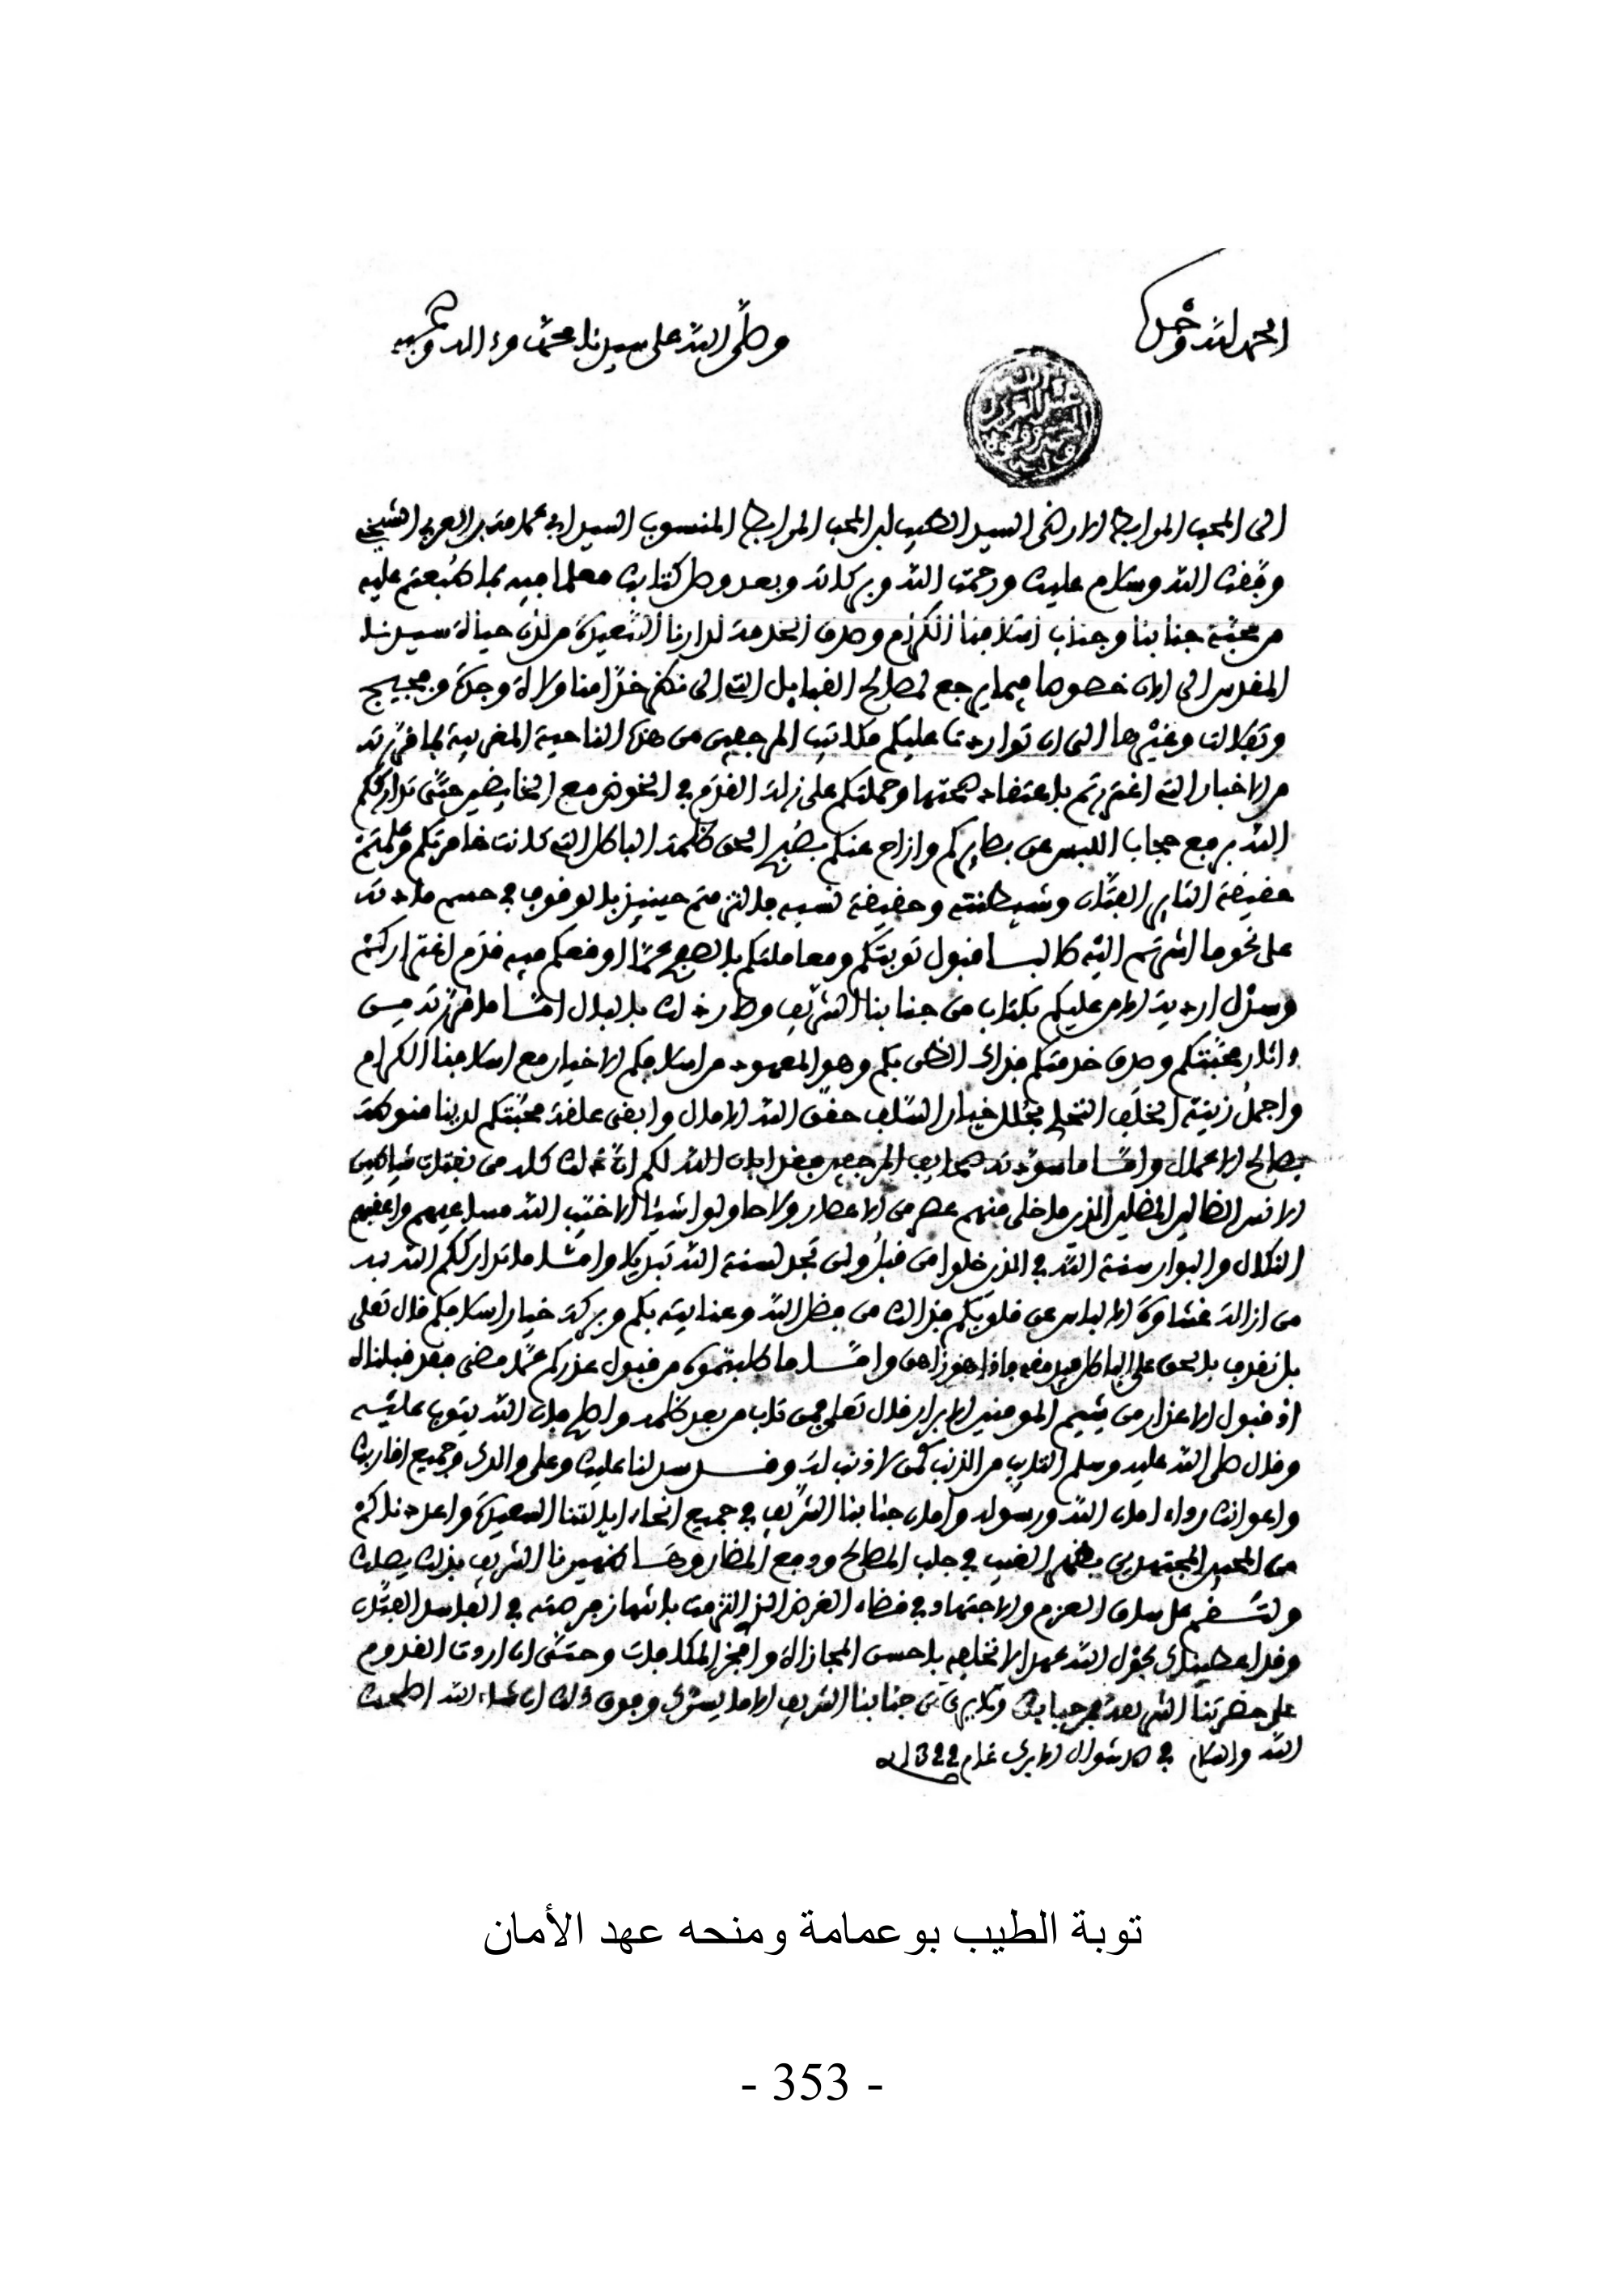 الحمد لله وحده
وصلى الله على سيدنا محمد وءاله وصحبه
الى المحب المرابط الارضى السيد الطيب ابن المحب المرابط المنسوب السيد ابي عمامة بن العربي الشيخي
وفقك الله وسلام عليك ورحمت الله وبركاته وبعد وصل كتابك معلما فيه بما طبعتم عليه
من محبة جنابنا وجناب اسلافنا الكرام وصدق الخدمة لدارنا السعيدة من لدن حياة سيدنا
المقدس الى الان خصوصا فيما يرجع لمصالح القبايل التي الى نظر خدامنا ولاة وجدة وفجيج
وتفلالت وغيرها الى ان تواردت عليكم مكاتب المرجفين من هذه الناحية المغربية بما
من الاخبار التي اغتررتم باعتقاد صحتها وحملتكم على زلة القدم في الخوض مع الخايضين حتى تدارككم
الله برفع حجاب اللبس عن بصايركم وازاح عنكم بصبح الحق ظلمة الباطل التي كانت خامرتكم وعلمتم
حقيقة الثاير الفتان وشيطنته وحقيقة نسبه فالتزمتم حينيذ بالوقوف في حسم مادته
على نحو ما اشرتم اليه طالبا قبول توبتكم ومعاملتكم بالصفح عما اوقعكم فيه قدم اغتراركم
عليكم بكتاب من جنابنا الشريف وصار ذلك بالبال اما ما قررته من
واثار محبتكم وصدق خدمتكم فذاك الظن بكم وهو المعهود من اسلافكم الاخيار مع اسلافنا الكرام
واجمل زينة الخلف التحلي بحلل خيار السلف حقق الله الامال وابقى علقة محبتكم لدينا منوطة
بصالح الاعمال واما ما سودته صحايف المرجفين فقد ابان الله لكم ان ذلك كله من نفثات شياطين
الانس الضالين المضلين الذين ما خلى منهم عصر من الاعصار ولا حاولوا شيئا الا خيب الله مساعيهم واعقبهم
النكال والبوار سنة الله في الذين خلوا من قبل ولن تجد لسنة الله تبديلا واما ما تدارككم الله به
من ازالة غشاوة الالباس عن قلوبكم فذالك من فضل الله وعنايته بكم وبركة خيار اسلافكم قال تعلى
بل نقذف بالحق على الباطل فيدمغه فاذا هو زاهق واما ما طلبتموه من قبول عذركم عما مضى فقد قبلناه
اذ قبول الاعذار من شيم المومنين الابرار قال تعلى فمن تاب من بعد ظلمه واصلح فان الله يتوب عليه
وقال صلى الله عليه وسلم التايب من الذنب كمن لا ذنب له وقد سدلنا عليك وعلى والدك وجميع اقاربك
واعوانك رداء امان الله ورسوله وامان جنابنا الشريف في جميع انحاء ايالتنا السعيدة واعدناكم
من المحبين المجتهدين بظهر الغيب في جلب المصالح ودفع المضار وها ظهيرنا الشريف بذلك يصلك
ولتشمر عن ساق العزم والاجتهاد في قضاء الغرض الذي التزمت بانتهاز فرصته في الفاسد الفتان
وقد اعطيناك بحول الله عهد الاتحافه باحسن المجازاة وافخر المكافات وحتى ان اردت القدوم
على حضرتنا الشريفة فمرحبا بك ولا ترى من جنابنا الشريف الا ما يسرك وفوق ذلك ان شاء الله اصلحك
الله والسلام في شوال الابرك عام 1322
توبة الطيب بوعمامة ومنحه عهد الأمان
- 353 -